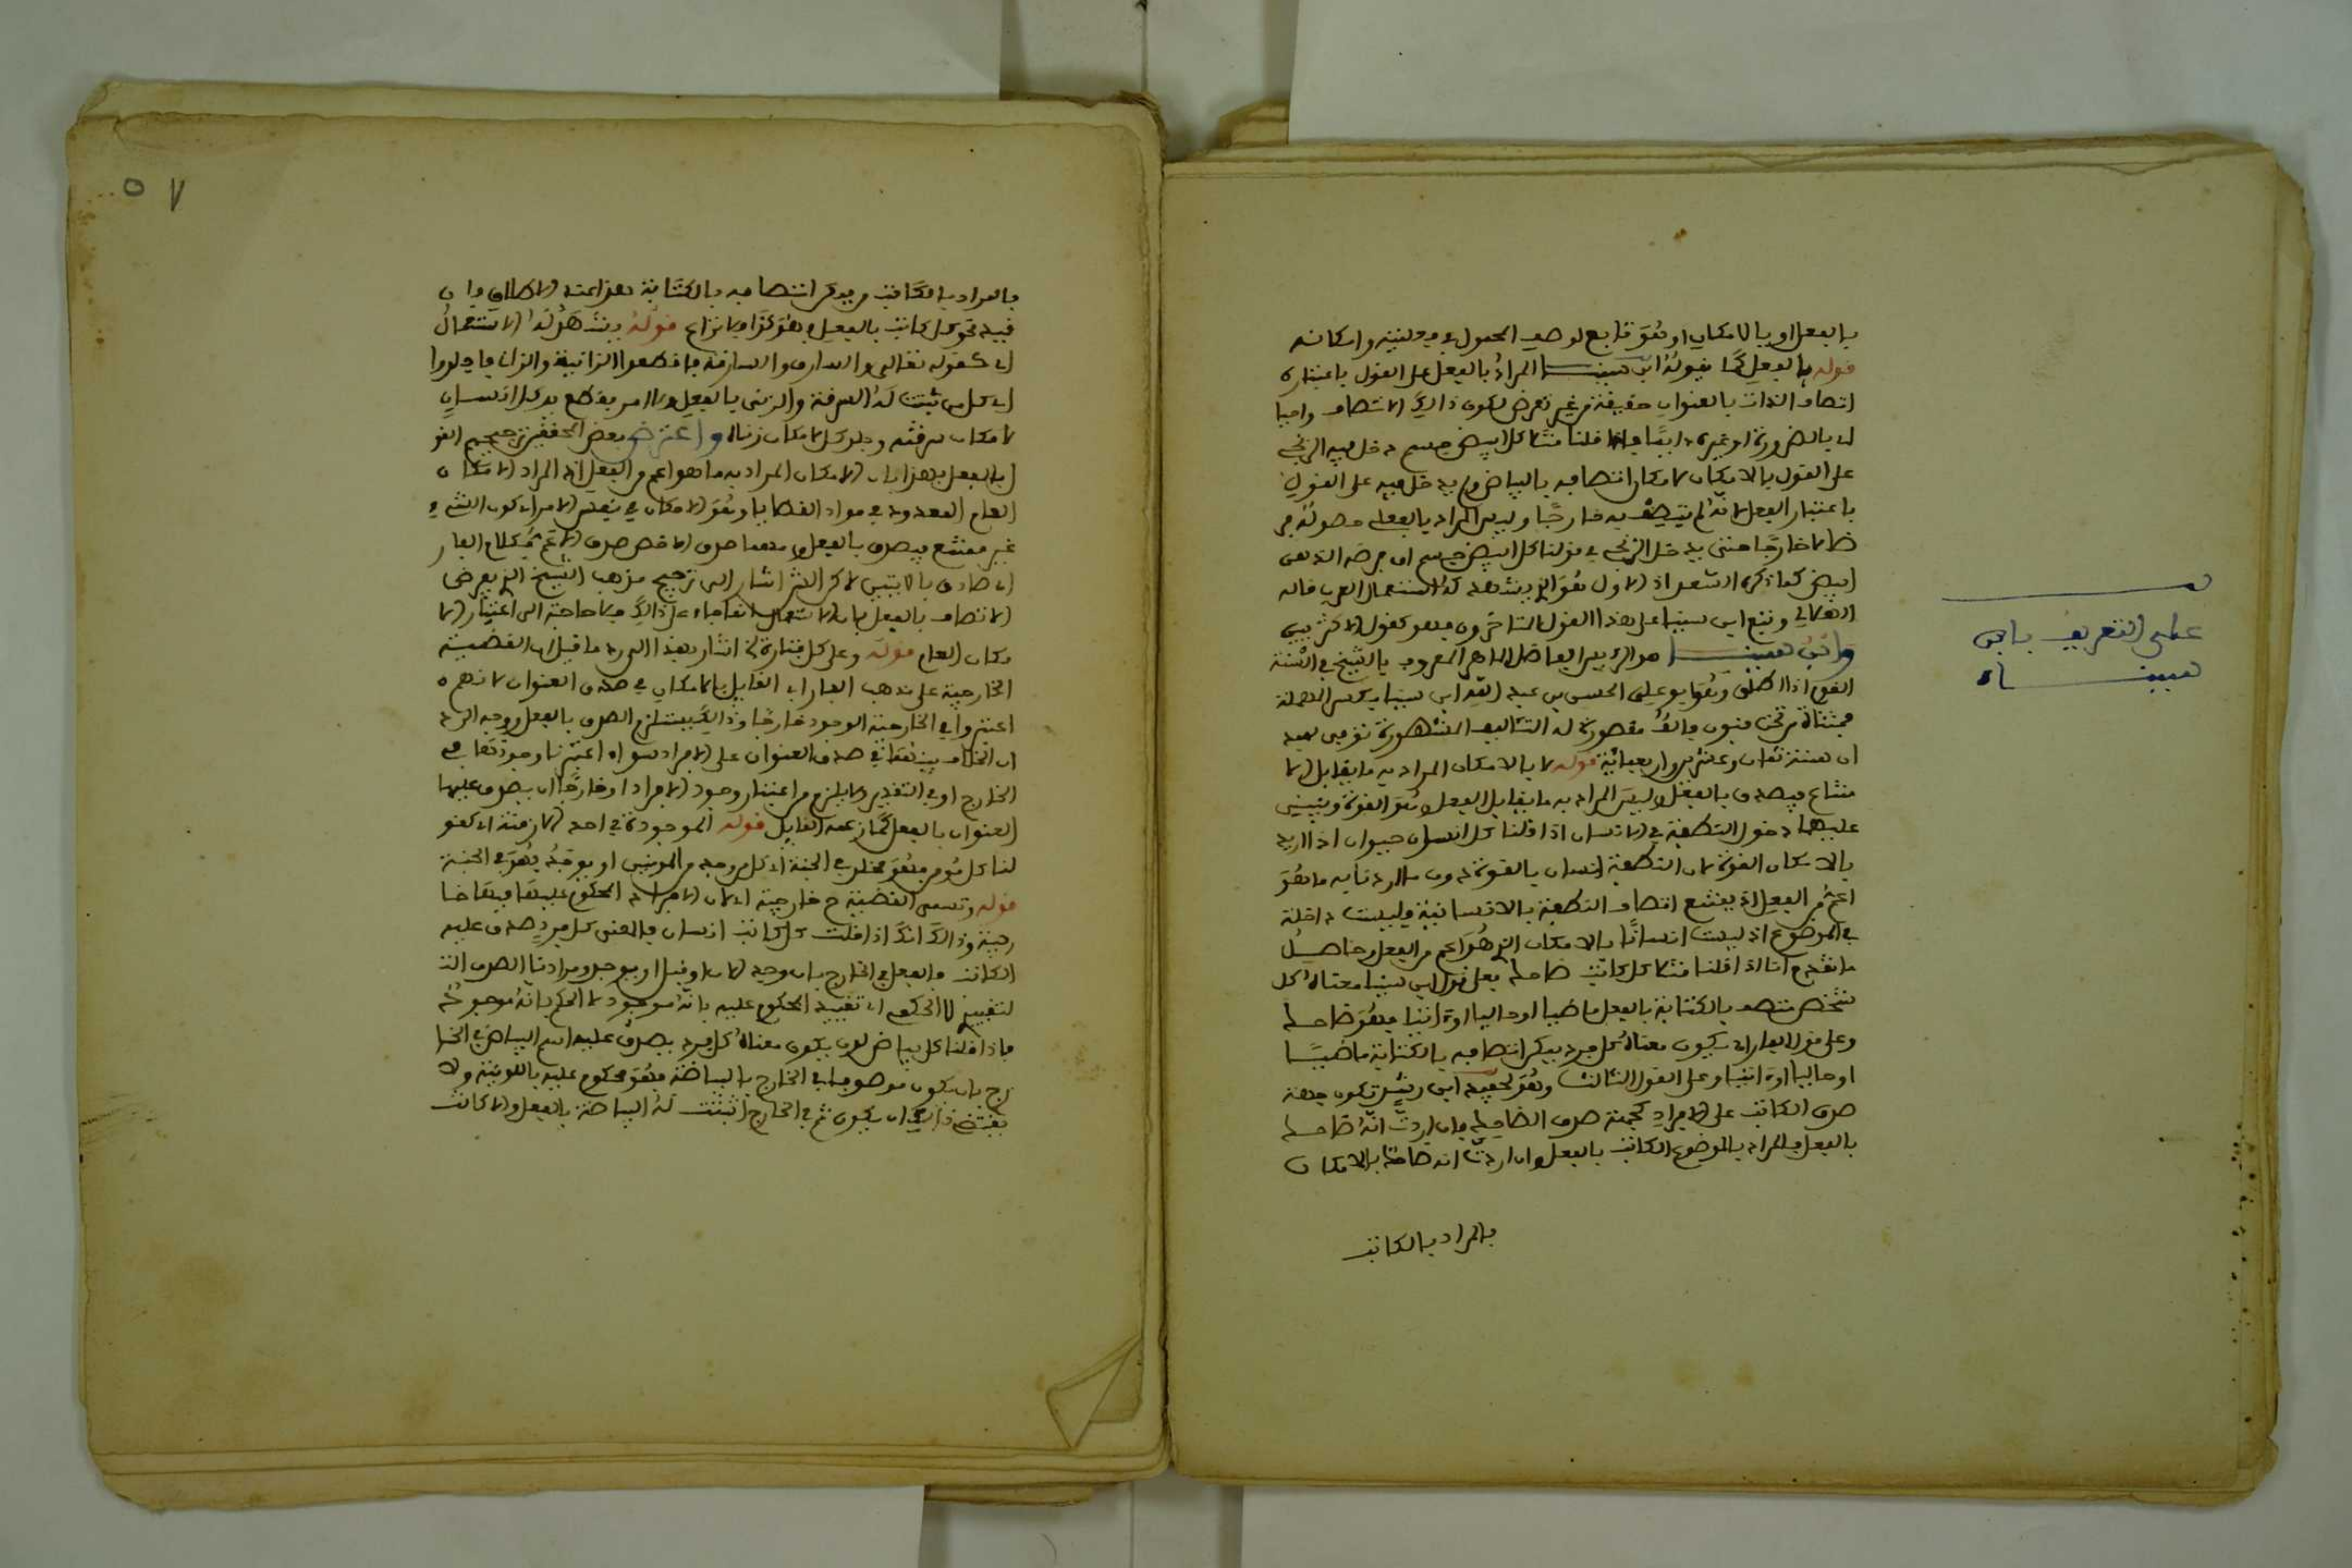 بالفعل او بالامكان او هو تابع لوصف المحمول في فعليته وامكانه
قوله بالفعل كما يقوله ابن سينا المراد بالفعل على القول باعتباره
اتصاف الذات بالعنوان حقيقة من غير تعرض لكون ذالك الاتصاف واجبا
اي بالضرورة او غيره دايما فاذا قلنا مثلا كل ابيض جسم دخل فيه الزنجي
على القول بالامكان لامكان اتصافه بالبياض ولم يدخل فيه على القول
باعتبار الفعل لانه لم يتصف به خارجا وليس المراد بالفعل حصوله من
ضا لا خارجا حتى يدخل الزنجي في قولنا كل ابيض جسم ان فرضه الذهن
ابيض كما ذكره السعد اذ الاول هو الذي يشهد له استعمال العرب قاله
الثعالبي وتبع ابن سينا على هذا القول المتاخرون فهو كقول الاكثريين
وابن سينا هو الرئيس الفاضل الماهر المعروف بالشيخ في السنة
القوم اذا اطلق وهو ابو على الحسين بن عبد الله ابن سينا بكسر المهملة
فمثناة من تحت فنون فالف مقصورة له التئاليف المشهورة توفى بهمد
ان سنة ثمان وعشرين واربعمائة قوله لا بالامكان المراد به ما يقابل الا
متناع فيصدق بالفعل وليس المراد به ما يقابل الفعل وهو القوة وينبنى
عليهما دخول النطفة في الانسان اذا قلنا كل انسان حيوان اذا اريد
بالامكان القوة لان النطفة انسان بالقوة دون ما اردنا به ما هو
اعم من الفعل اذ يمتنع اتصاف النطفة بالانسانية وليست داخلة
في الموضوع اذ ليست انسانا بالامكان الذي هو اعم من الفعل وحاصل
ما تقدم انا اذا قلنا مثلا كل كاتب ضاحك فعلى قول ابن سينا معناه كل
شخص متصف بالكتابة بالفعل ماضيا او حاليا او اتيا فهو ضاحك
وعلى قول الفارابي يكون معناه كل فرد يمكن اتصافه بالكتابة ماضيا
او حاليا او اتيا وعلى القول الثالث وهو لحفيد ابن رشد تكون جهة
صدق الكاتب على الافراد كجهة صدق الضاحك فان اردت انه ضاحك
بالفعل فالمراد بالموضوع الكاتب بالفعل وان اردت انه ضاحك بالامكان
فالمراد بالكاتب
على التعريف بابن
سيناء
٥٧
فالمراد بالكاتب من يمكن اتصافه بالكتابة هذا عند الاطلاق وان
قيد نحو كل كاتب بالفعل فهو كذا فلا نزاع قوله ويشهد له الاستعمال
اي كقوله تعالى والسارق والسارقة فاقطعوا الزانية والزاني فاجلدوا
اي كل من ثبتت له السرقة والزنى بالفعل والا لامر بقطع يد كل انسان
لامكان سرقته وجلد كل لامكان زناه واعترض بعض المحققين ترجيحهم القو
ل بالفعل بهذا بان الامكان المراد به ما هو اعم من الفعل اذ المراد الامكان
العام المعدود في مواد القضايا وهو الامكان في نفس الامر اي كون الشيء
غير ممتنع فيصدق بالفعل ومهما صدق الاخص صدق الاعم فكلام الفار
ابي صادق بالايتين لاكن الشر اشار الى ترجيح مذهب الشيخ الذي يعرض
الاتصاف بالفعل بان الاستعمال انما جاء على ذالك فلا حاجة الى اعتبار الا
مكان العام قوله وعلى كل عبارة الخ اشار بهذا الى رد ما قيل ان القضية
الخارجية على مذهب الفارابي القايل بالامكان في صدق العنوان لا تهم ه
اعتبروا في الخارجية الوجود خارجا وذالك يستلزم الصدق بالفعل ووجه الرد
ان الخلاف بينهما في صدق العنوان على الافراد سواء اعتبرنا وجودها في
الخارج او في التقدير ولا يلزم من اعتبار وجود الافراد خارجا ان يصدق عليها
العنوان بالفعل كما زعمه القايل قوله الموجودة في احد الازمنة اي كقو
لنا كل مومن فهو مخلد في الجنة اي كل من وجد من المومنين او يوجد فهو في الجنة
قوله وتسمى القضية ح خارجية اي لان الافراد المحكوم عليها فيها خا
رجية وذالك انك اذا قلت كل كاتب انسان فالمعنى كل فرد صدق عليه
الكاتب بالفعل في الخارج بان وجد الان او قبل او يوجد ومرادنا الصدق الذ
لتقييد لا الحكم اي تقييد المحكوم عليه بانه موجود لا الحكم بانه موجود
فاذا قلنا كل بياض لون يكون معناه كل فرد يصدق عليه اسم البياض في الخا
رج بان يكون موصوفا في الخارج بالبياضية فهو محكوم عليه باللونية ولا
يقتضي ذالك ان يكون ثم في الخارج اثبتت له البياضة بالفعل والا كانت